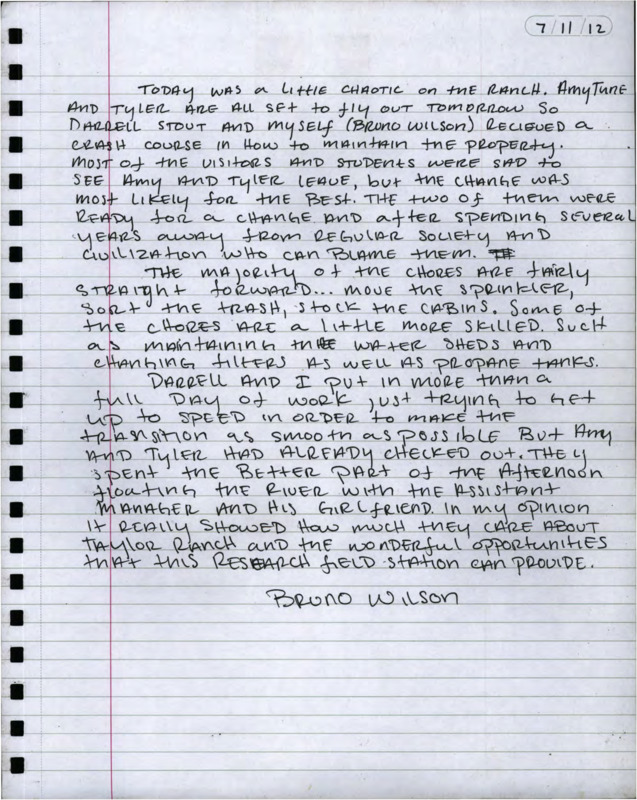 7/11/12
TODAY WAS a LittLE CHAOTIC on tHE RANCH. Amy TUNE
AND TYLER ARE ALL SET to fly OUT TOMORROW SO
DARRELL STOUT AND mySELF (BRUNO WILSON) RECIEVED a
CRASH COURSE IN HOW to MAINTAIN tHE PROPERTY.
MOST of tHE VISITORS AND STUDENTS WERE SAD to
SEE Amy AND TYLER LEAVE, but tHE CHANGE WAS
MOST LIKELY for tHE BEST. THE two of tHEM WERE
READY for a CHANGE AND after SPENDING SEVERAL
YEARS away from REGULAR SOCIETY AND
CIVILIZATION WHO CAN BLAME tHEM.
THE MAJORITY of tHE CHORES ARE fairly
STRAIGHT forward... MOVE tHE SPRINKLER,
SORT tHE tRASH, STOCK tHE CABINS. SOME of
tHE CHORES ARE a LITTLE MORE SKILLED. SUCH
as MAINTAINING tHE WATER SHEDS AND
CHANGING filtERS AS WELL AS PROPANE tANKS.
DARRELL AND I put IN MORE tHAN a
full DAY of WORK just tRYING to GET
up to SPEED IN ORDER to MAKE tHE
tRANSITION as SMOOTH as POSSIBLE BUT Amy
AND TYLER HAD ALREADY CHECKED OUT. THEY
SPENT tHE BETTER PART of tHE AfterNOON
floating tHE RIVER WITH tHE ASSISTANT
MANAGER AND HIS GIRLfRIEND. IN my OPINION
It REALLY SHOWED HOW MUCH tHEY CARE ABOUT
TAYLOR RANCH AND tHE WONDERful OPPORTUNITIES
tHAT tHIS RESEARCH fIELD STATION CAN PROVIDE.
BRUNO WILSON